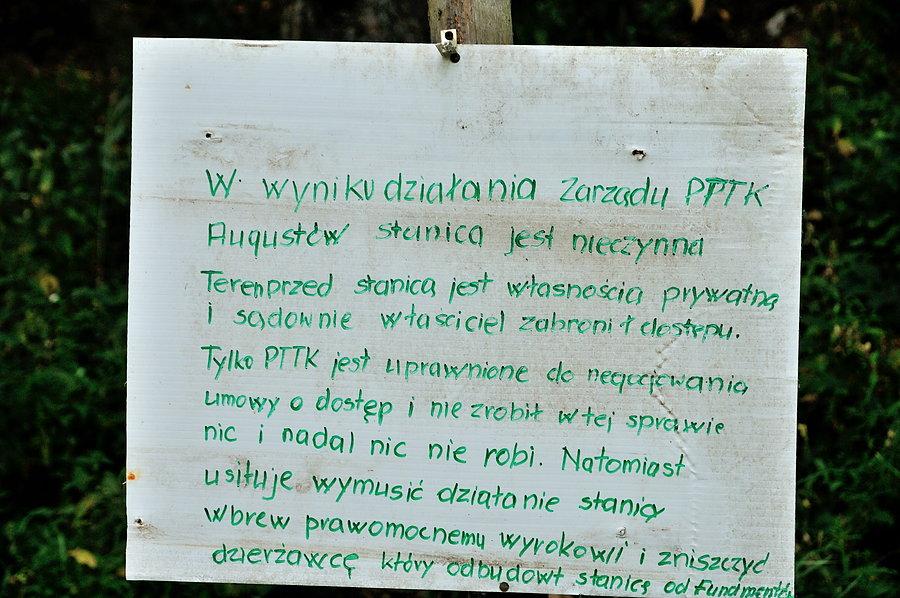 W wyniku działania Zarządu PPTK
Augustów stanica jest nieczynna
Teren przed stanicą jest własnością prywatną
i sądownie właściciel zabronił dostępu.
Tylko PTTK jest uprawnione do negocjowania
umowy o dostęp i nie zrobił w tej sprawie
nic i nadal nic nie robi. Natomiast
usiłuje wymusić działanie stanicy
wbrew prawomocnemu wyrokowi i zniszczyć
dzierżawcę który odbudowł stanicę od fundamentów